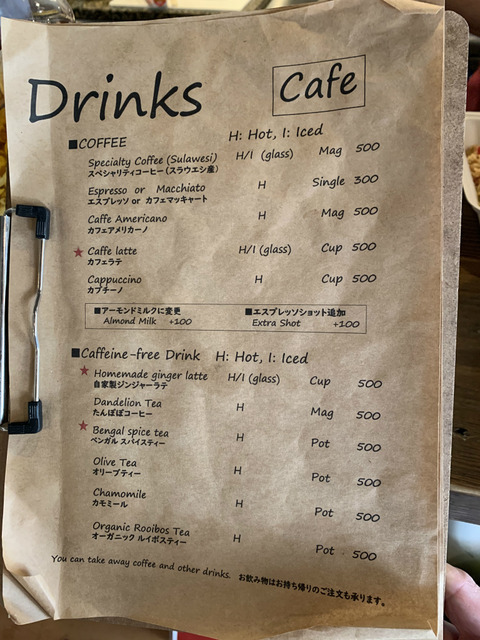 Drinks
Cafe
H: Hot, I: Iced
■COFFEE
Specialty Coffee (Sulawesi) H/I (glass) Mag 500
スペシャリティコーヒー(スラウエシ産)
Espresso or Macchiato H Single 300
エスプレッソ or カフェマッキャート
Caffe Americano H Mag 500
カフェアメリカーノ
★ Caffe latte H/I (glass) Cup 500
カフェラテ
Cappuccino H Cup 500
カプチーノ
■アーモンドミルクに変更 ■エスプレッソショット追加
Almond Milk +100 Extra Shot +100
■Caffeine-free Drink H: Hot, I: Iced
★ Homemade ginger latte H/I (glass) Cup 500
自家製ジンジャーラテ
Dandelion Tea H Mag 500
たんぽぽコーヒー
★ Bengal spice tea H Pot 500
ベンガル スパイスティー
Olive Tea H Pot 500
オリーブティー
Chamomile H Pot 500
カモミール
Organic Rooibos Tea H Pot 500
オーガニック ルイボスティー
You can take away coffee and other drinks. お飲み物はお持ち帰りのご注文も承ります。